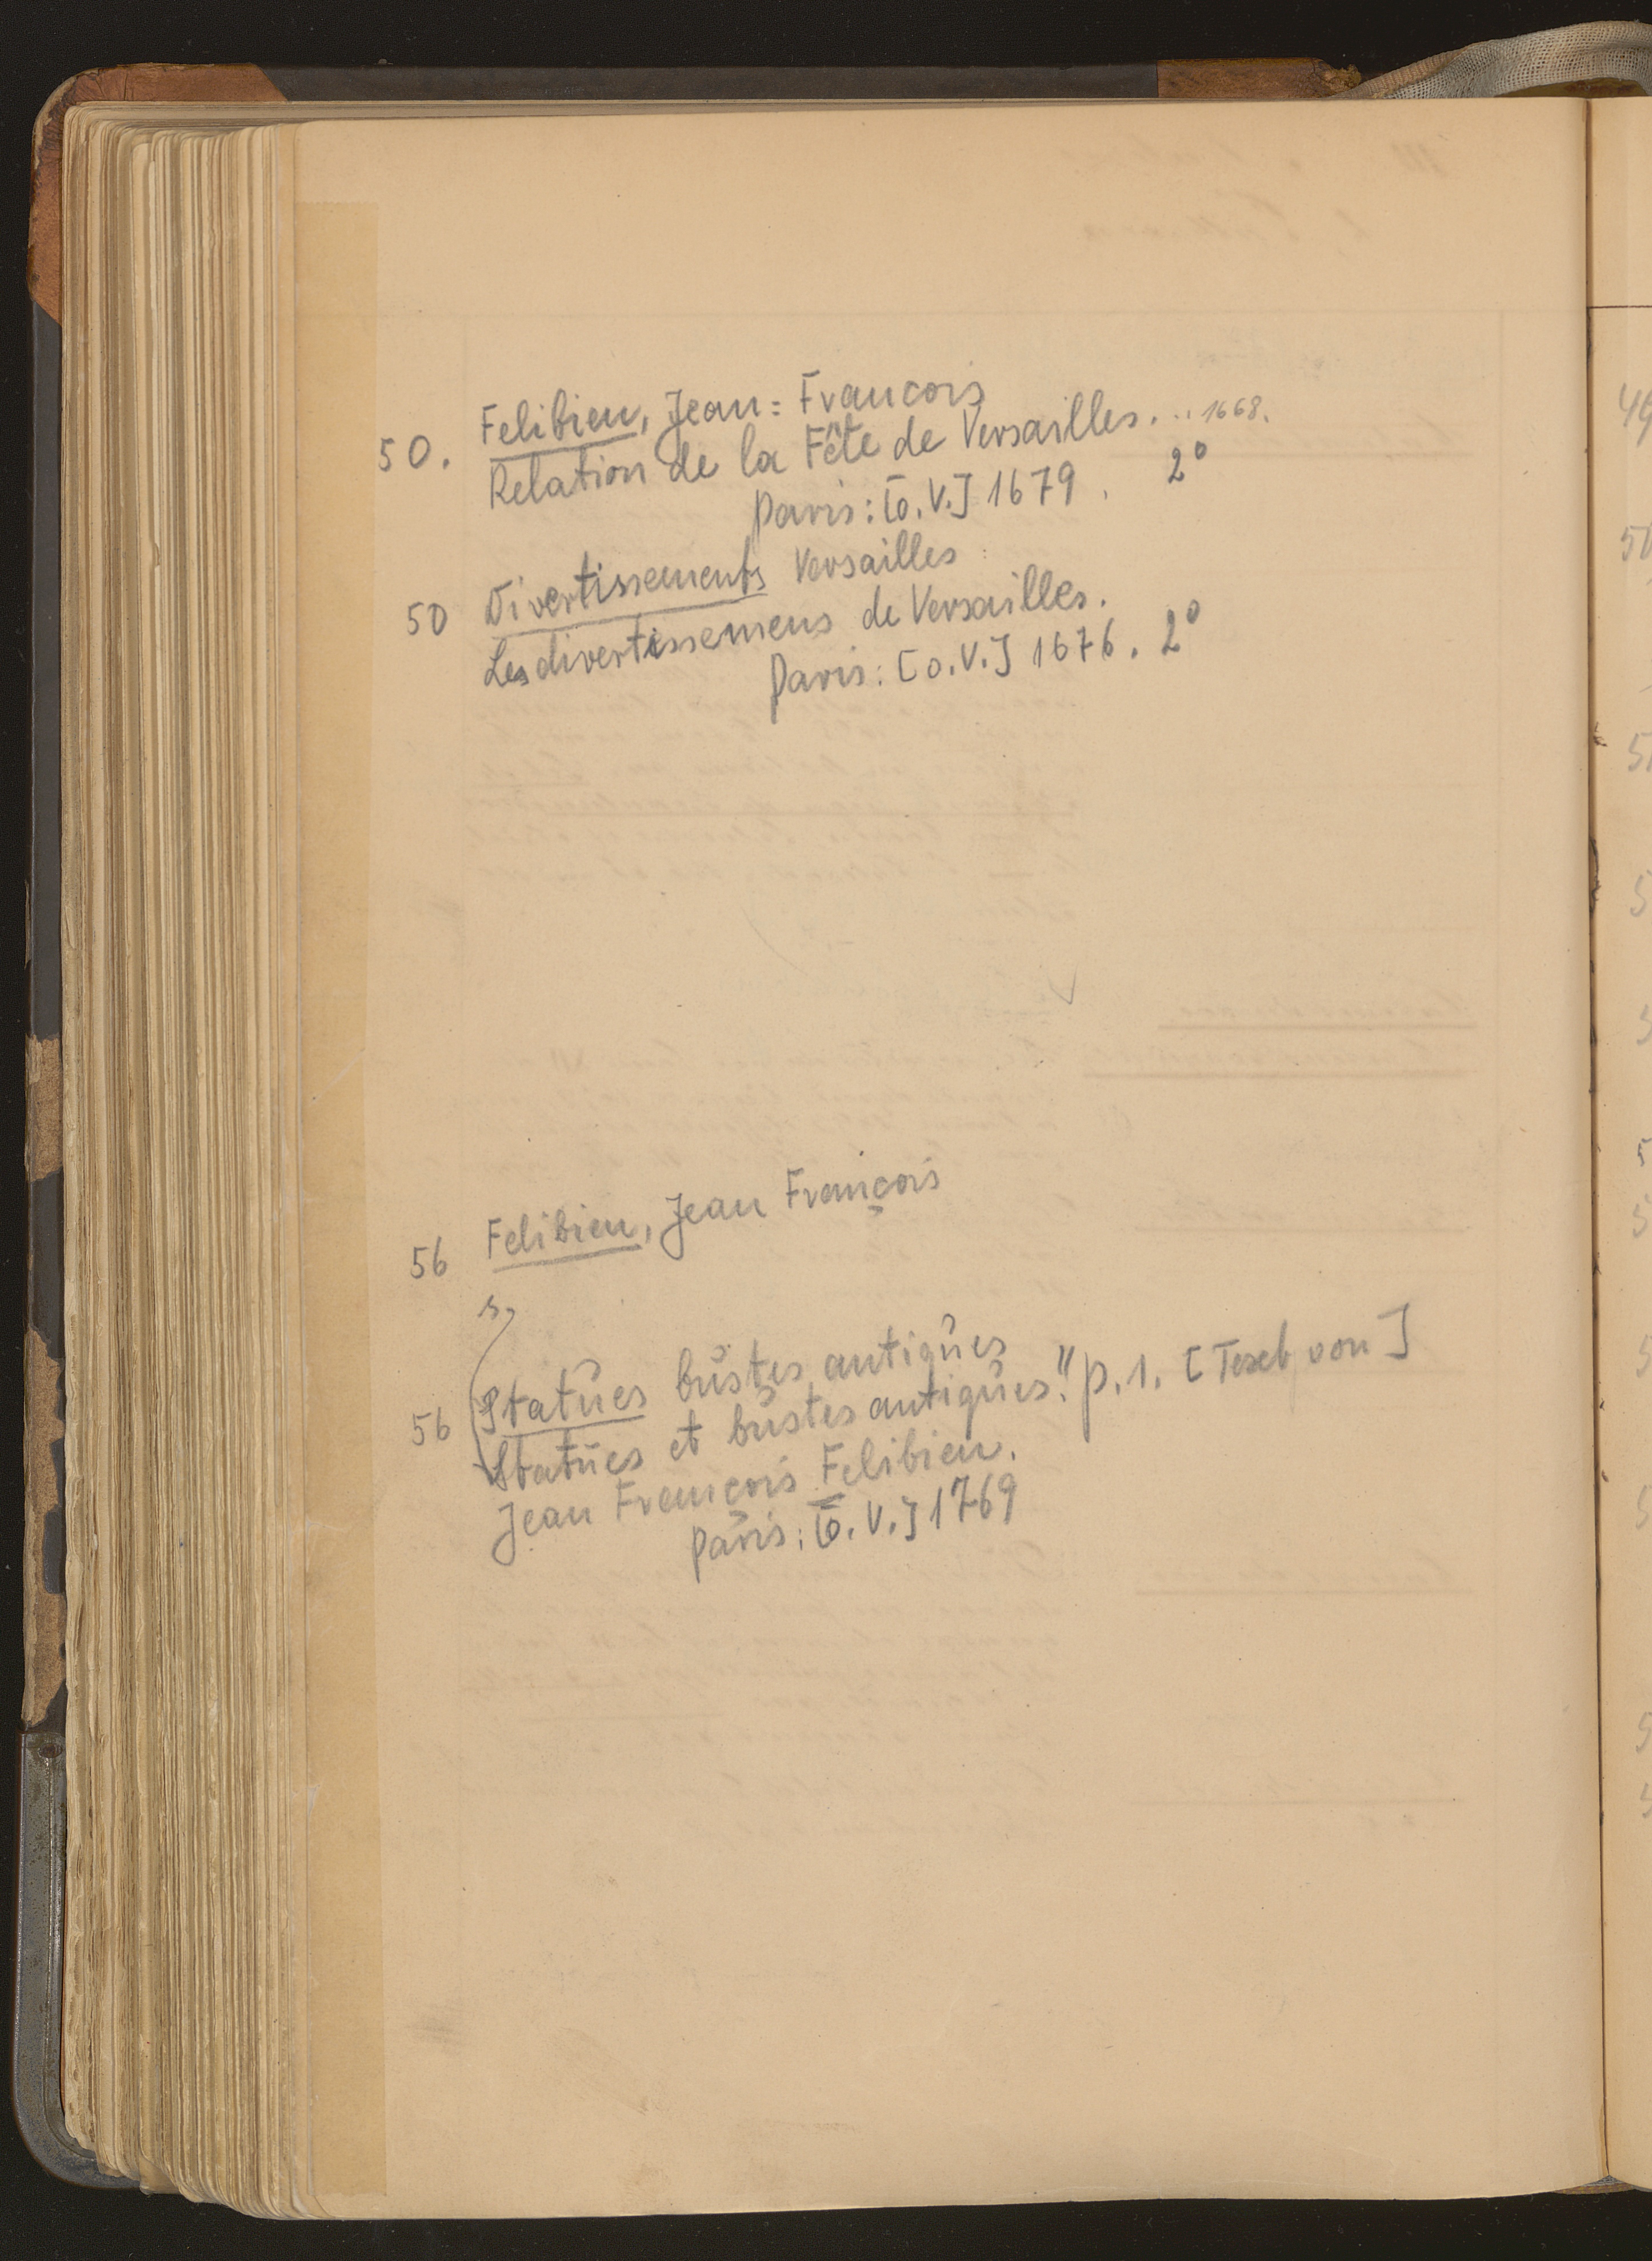 50. Felibien, Jean = Francois
Relation de la Fête de Versailles. .. 1668.
Paris: [o. V.] 1679. 2°
50 Divertissements Versailles
Les divertissemens de Versailles.
Paris: [o. V.] 1676. 2°
56 Felibien, Jean François
s.
56 Statues bustes antiques
Statues et bustes antiques." p. 1. [Text von]
Jean François Felibien.
Paris: [o. V.] 1769